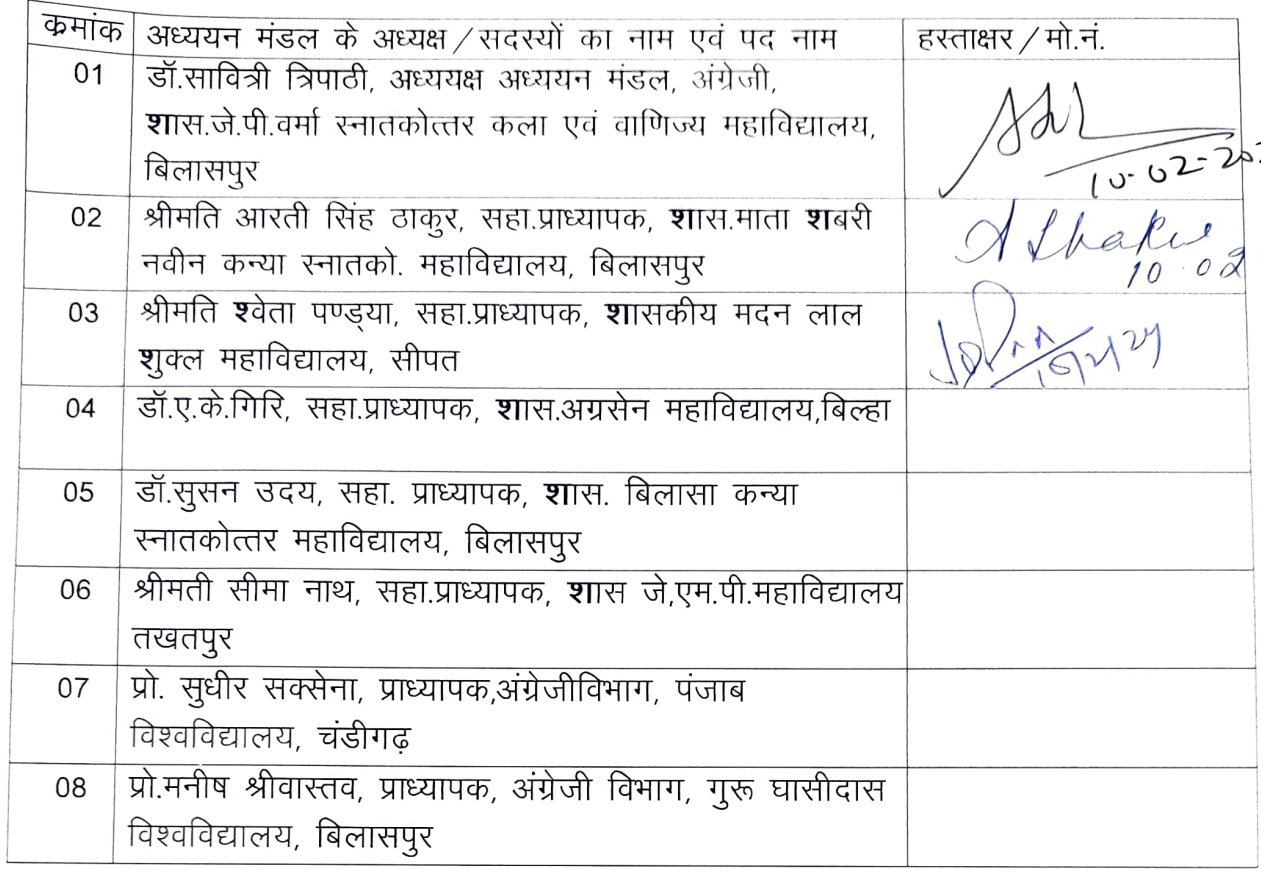 क्रमांक अध्ययन मंडल के अध्यक्ष/सदस्यों का नाम एवं पद नाम हस्ताक्षर/मो.नं.
01 डॉ.सावित्री त्रिपाठी, अध्ययक्ष अध्ययन मंडल, अंग्रेजी,
शास.जे.पी.वर्मा स्नातकोत्तर कला एवं वाणिज्य महाविद्यालय,
बिलासपुर
10-02-20
02 श्रीमति आरती सिंह ठाकुर, सहा.प्राध्यापक, शास.माता शबरी
नवीन कन्या स्नातको. महाविद्यालय, बिलासपुर
10.02
03 श्रीमति श्वेता पण्ड्या, सहा.प्राध्यापक, शासकीय मदन लाल
शुक्ल महाविद्यालय, सीपत
04 डॉ.ए.के.गिरि, सहा.प्राध्यापक, शास.अग्रसेन महाविद्यालय,बिल्हा
05 डॉ.सुसन उदय, सहा. प्राध्यापक, शास. बिलासा कन्या
स्नातकोत्तर महाविद्यालय, बिलासपुर
06 श्रीमती सीमा नाथ, सहा.प्राध्यापक, शास जे,एम.पी.महाविद्यालय
तखतपुर
07 प्रो. सुधीर सक्सेना, प्राध्यापक,अंग्रेजीविभाग, पंजाब
विश्वविद्यालय, चंडीगढ़
08 प्रो.मनीष श्रीवास्तव, प्राध्यापक, अंग्रेजी विभाग, गुरू घासीदास
विश्वविद्यालय, बिलासपुर